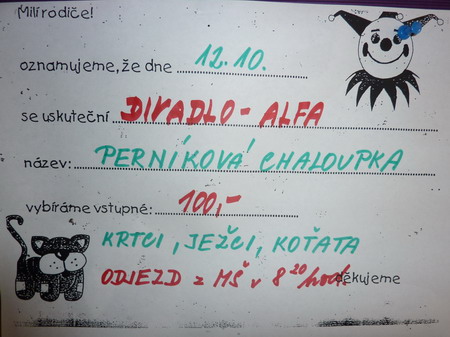 Milí rodiče!
oznamujeme, že dne 12.10.
se uskuteční DIVADLO - ALFA
název: PERNÍKOVÁ CHALOUPKA
vybíráme vstupné: 100,-
KRTCI, JEŽCI, KOŤATA
ODJEZD z MŠ v 8 20 hod. děkujeme